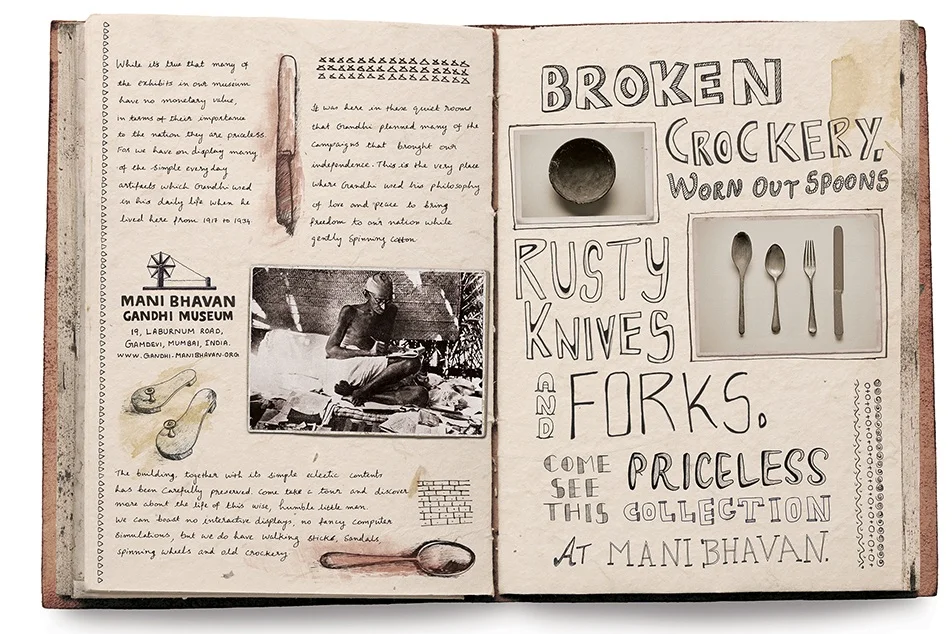 While its true that many of
the exhibits in our museum
have no monetary value,
in terms of their importance
to the nation they are priceless.
For we have on display many
of the simple everyday
artifacts which Gandhi used
in his daily life when he
lived here from 1917 to 1934.
It was here in these quiet rooms
that Gandhi planned many of the
campaigns that brought our
independence. This is the very place
where Gandhi used his philosophy
of love and peace to bring
freedom to our nation while
gently spinning cotton
MANI BHAVAN
GANDHI MUSEUM
19, LABURNUM ROAD,
GAMDEVI, MUMBAI, INDIA.
WWW.GANDHI-MANIBHAVAN.ORG
The building, together with its simple eclectic contents
has been carefully preserved. Come take a tour and discover
more about the life of this wise, humble little man.
We can boast no interactive displays, no fancy computer
simulations, but we do have walking sticks, sandals,
spinning wheels and old crockery
BROKEN
CROCKERY,
WORN OUT SPOONS
RUSTY
KNIVES
AND FORKS.
COME
SEE
THIS
PRICELESS
COLLECTION
AT MANI BHAVAN.